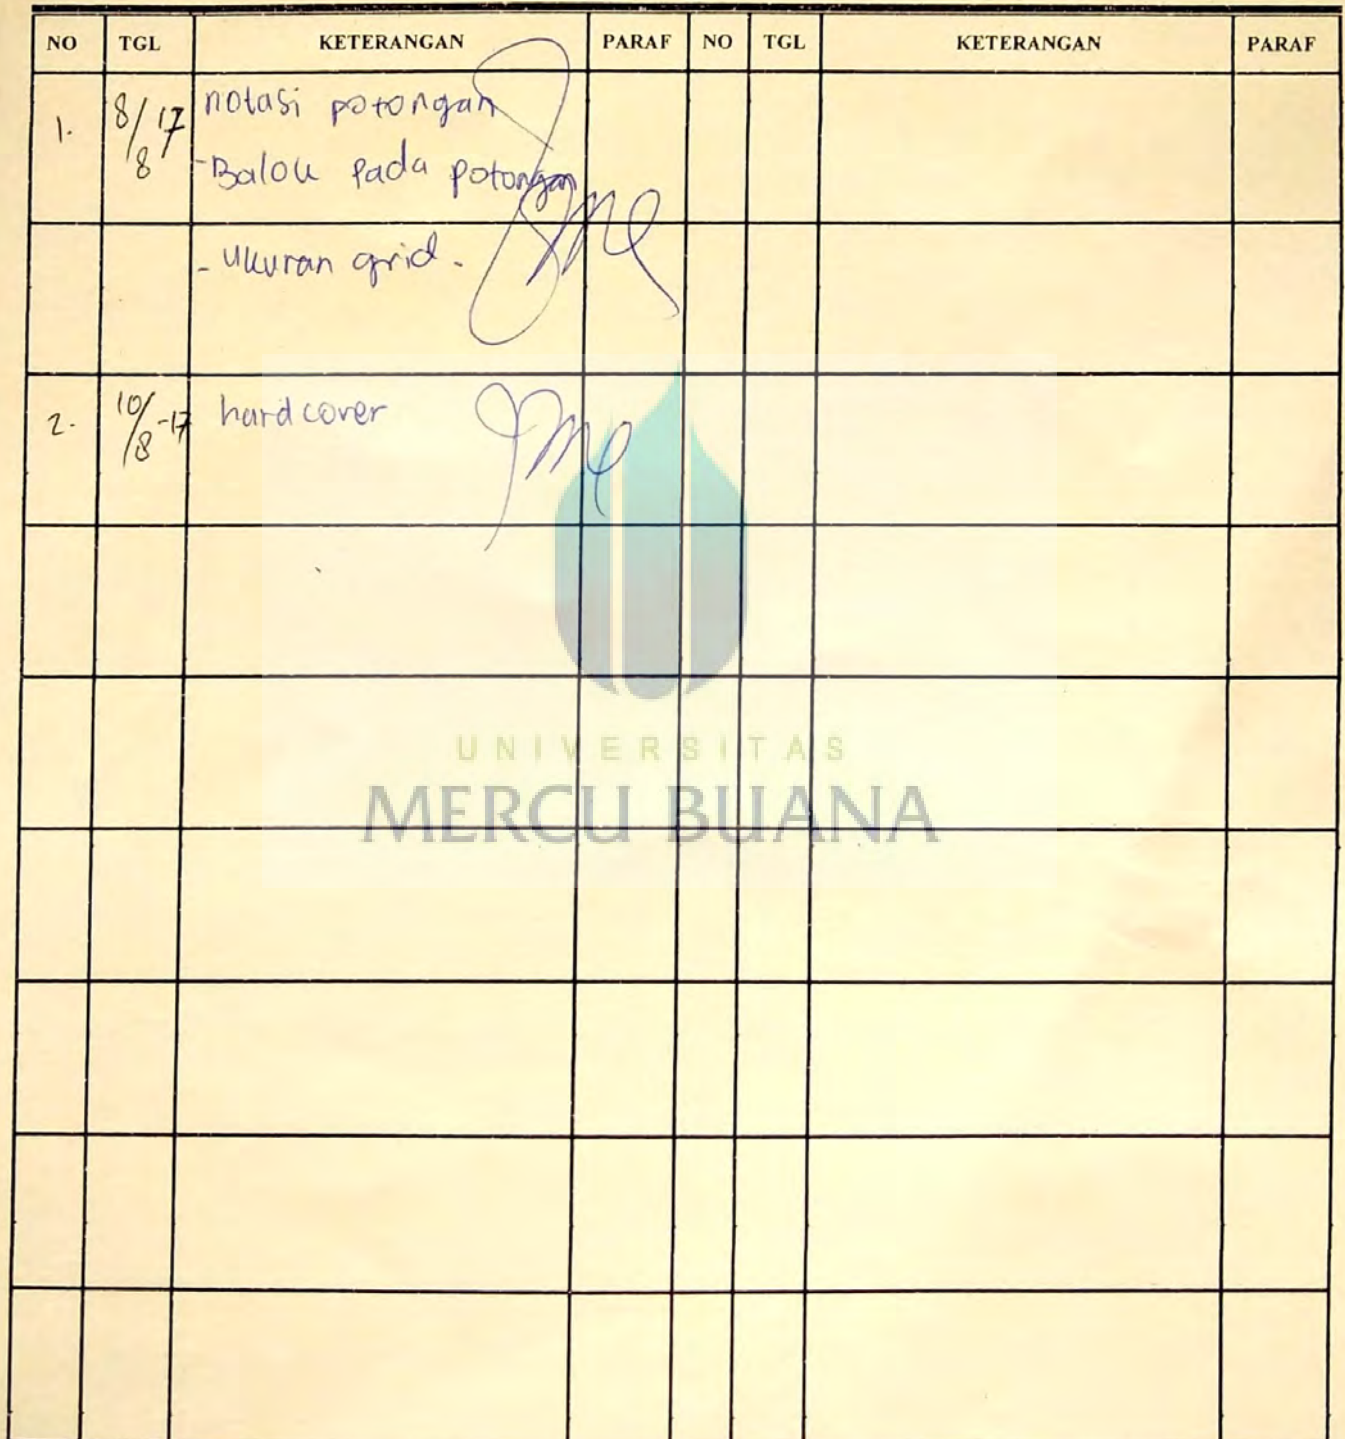 NO TGL KETERANGAN PARAF NO TGL KETERANGAN PARAF
1. 8/8 17 notasi potongan
- Balok pada potongan
- Ukuran grid.
2. 10/8 -17 hard cover
UNIVERSITAS
MERCU BUANA